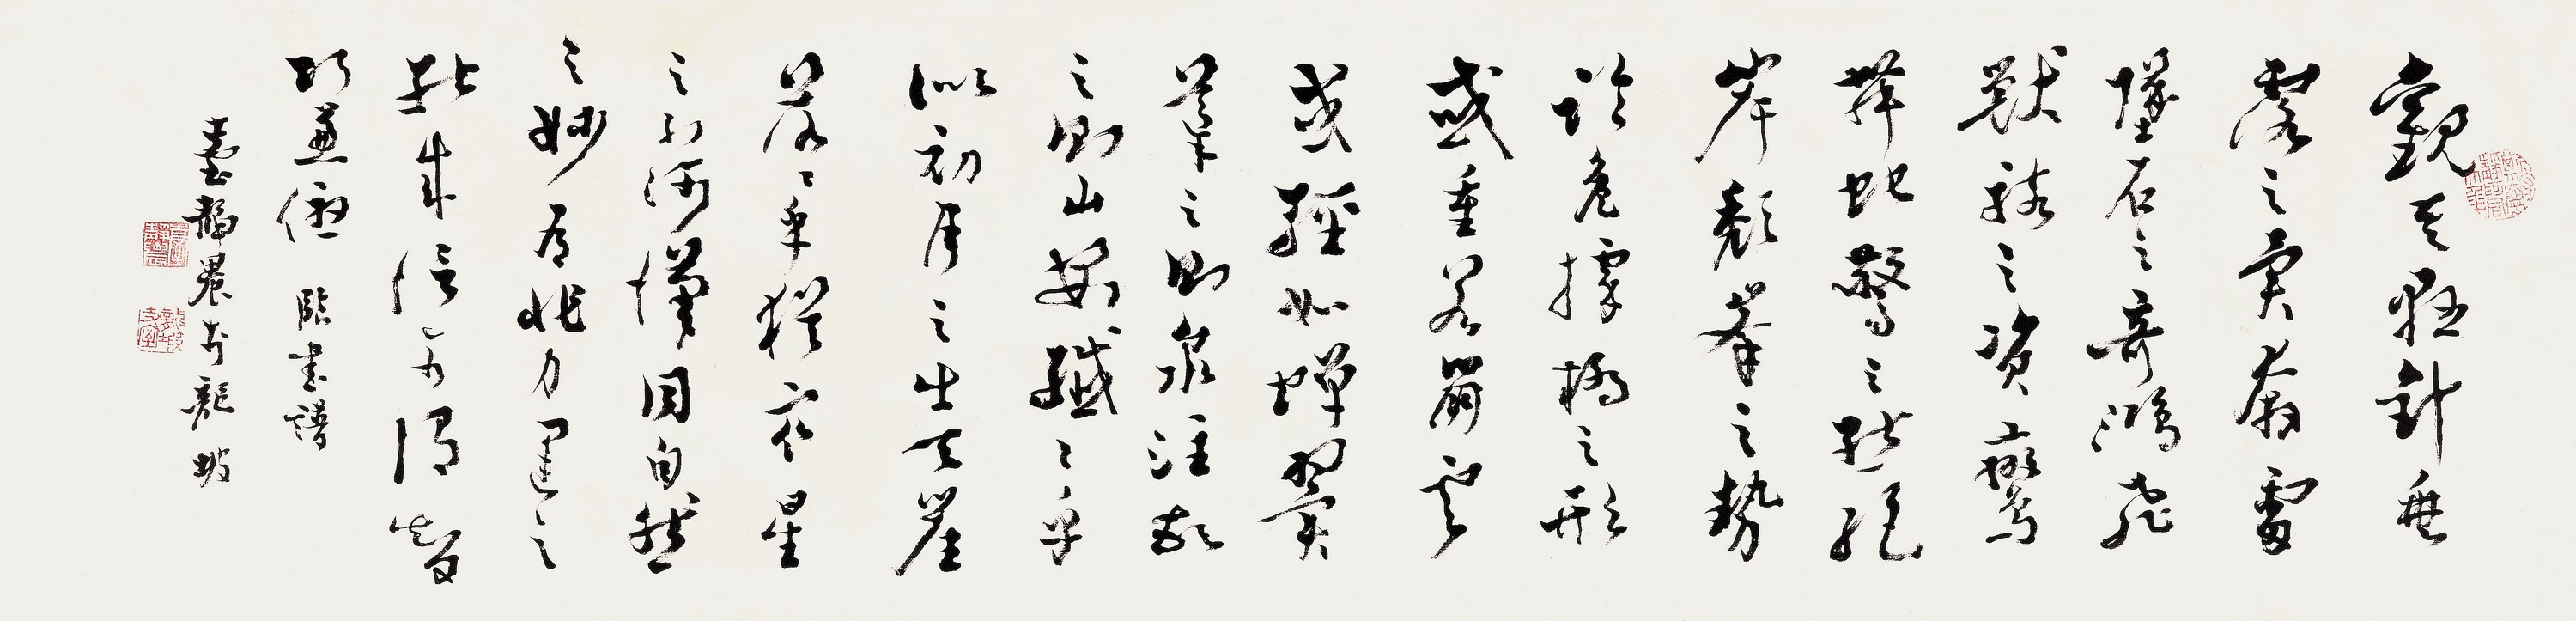 觀夫懸針垂
露之異奔雷
墜石之奇鴻飛
獸駭之資鸞
舞蛇驚之態絕
岸頹峯之勢
臨危據槁之形
或重若崩雲
或輕如蟬翼
導之則泉注頓
之則山安纖〻乎
似初月之出天崖
落〻乎猶眾星
之列河漢同自然
之妙有非力運之
能成信可謂智
巧兼優 臨書譜
臺靜農於龍坡